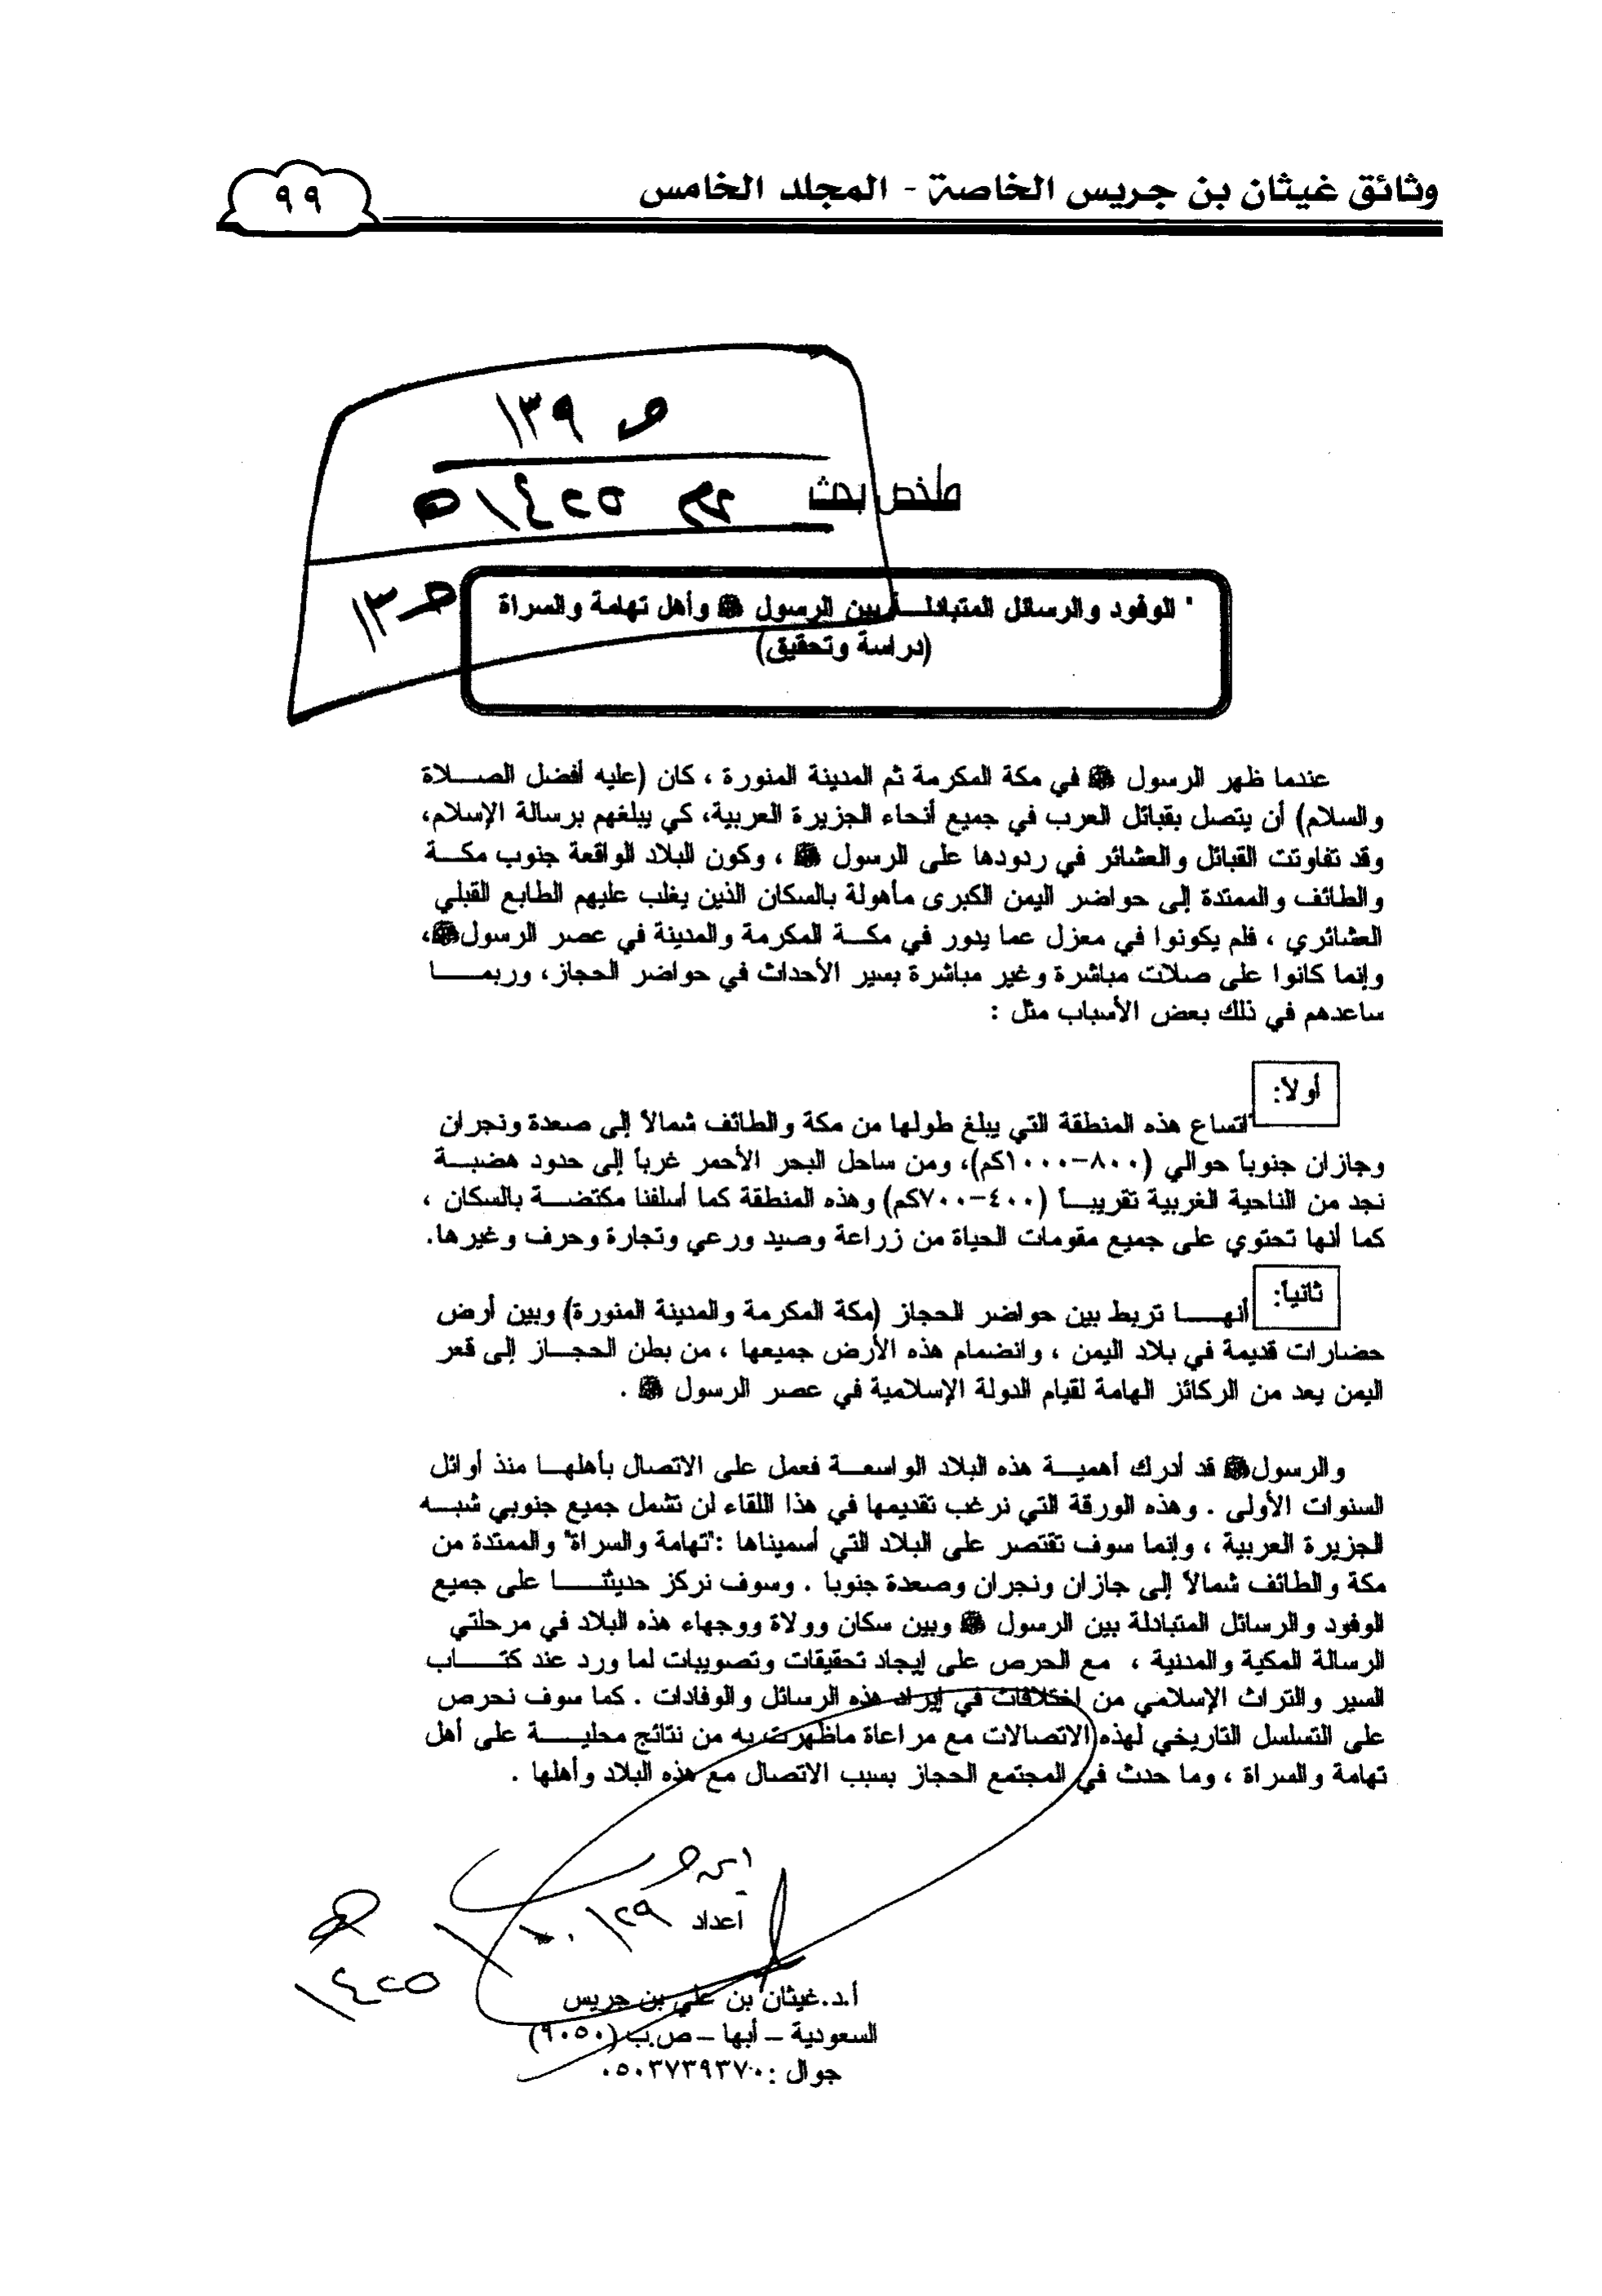 وثائق غيثان بن جريس الخاصة - المجلد الخامس
٩٩
ص ١٣٩
ملخص بحث
ص ١٣
" الوفود والرسائل المتبادلة بين الرسول ﷺ وأهل تهامة والسراة
(دراسة وتحقيق)
عندما ظهر الرسول ﷺ في مكة المكرمة ثم المدينة المنورة ، كان (عليه أفضل الصلاة
والسلام) أن يتصل بقبائل العرب في جميع أنحاء الجزيرة العربية، كي يبلغهم برسالة الإسلام،
وقد تفاوتت القبائل والعشائر في ردودها على الرسول ﷺ ، وكون البلاد الواقعة جنوب مكة
والطائف والممتدة إلى حواضر اليمن الكبرى مأهولة بالسكان الذين يغلب عليهم الطابع القبلي
العشائري ، فلم يكونوا في معزل عما يدور في مكة المكرمة والمدينة في عصر الرسولﷺ،
وإنما كانوا على صلات مباشرة وغير مباشرة بسير الأحداث في حواضر الحجاز، وربما
ساعدهم في ذلك بعض الأسباب مثل :
أولاً:
اتساع هذه المنطقة التي يبلغ طولها من مكة والطائف شمالاً إلى صعدة ونجران
وجازان جنوباً حوالي (٨٠٠-١٠٠٠كم)، ومن ساحل البحر الأحمر غرباً إلى حدود هضبة
نجد من الناحية الغربية تقريباً (٤٠٠-٧٠٠كم) وهذه المنطقة كما أسلفنا مكتضة بالسكان ،
كما أنها تحتوي على جميع مقومات الحياة من زراعة وصيد ورعي وتجارة وحرف وغيرها.
ثانياً:
أنها تربط بين حواضر الحجاز (مكة المكرمة والمدينة المنورة) وبين أرض
حضارات قديمة في بلاد اليمن ، وانضمام هذه الأرض جميعها ، من بطن الحجاز إلى قعر
اليمن يعد من الركائز الهامة لقيام الدولة الإسلامية في عصر الرسول ﷺ .
والرسولﷺ قد أدرك أهمية هذه البلاد الواسعة فعمل على الاتصال بأهلها منذ أوائل
السنوات الأولى . وهذه الورقة التي نرغب تقديمها في هذا اللقاء لن تشمل جميع جنوبي شبه
الجزيرة العربية ، وإنما سوف تقتصر على البلاد التي أسميناها :"تهامة والسراة" والممتدة من
مكة والطائف شمالاً إلى جازان ونجران وصعدة جنوبا . وسوف نركز حديثنا على جميع
الوفود والرسائل المتبادلة بين الرسول ﷺ وبين سكان وولاة ووجهاء هذه البلاد في مرحلتي
الرسالة المكية والمدنية ، مع الحرص على إيجاد تحقيقات وتصويبات لما ورد عند كتاب
السير والتراث الإسلامي من اختلافات في إيراد هذه الرسائل والوفادات . كما سوف نحرص
على التسلسل التاريخي لهذه الاتصالات مع مراعاة ماظهرت به من نتائج محلية على أهل
تهامة والسراة ، وما حدث في المجتمع الحجاز بسبب الاتصال مع هذه البلاد وأهلها .
اعداد
أ.د.غيثان بن علي بن جريس
السعودية - أبها - ص.ب (٩٠٥٠)
جوال :٠٥٠٣٧٣٩٣٧٠